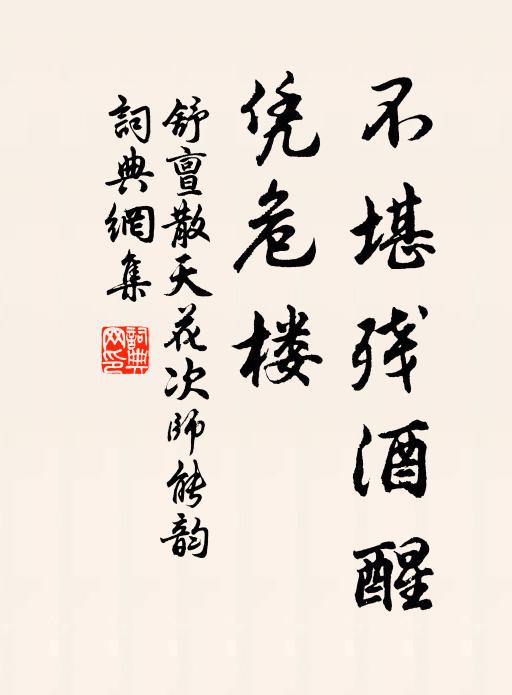 不堪残酒醒
凭危楼
舒亶散天花次師能韵
詞典網集
詞典網印